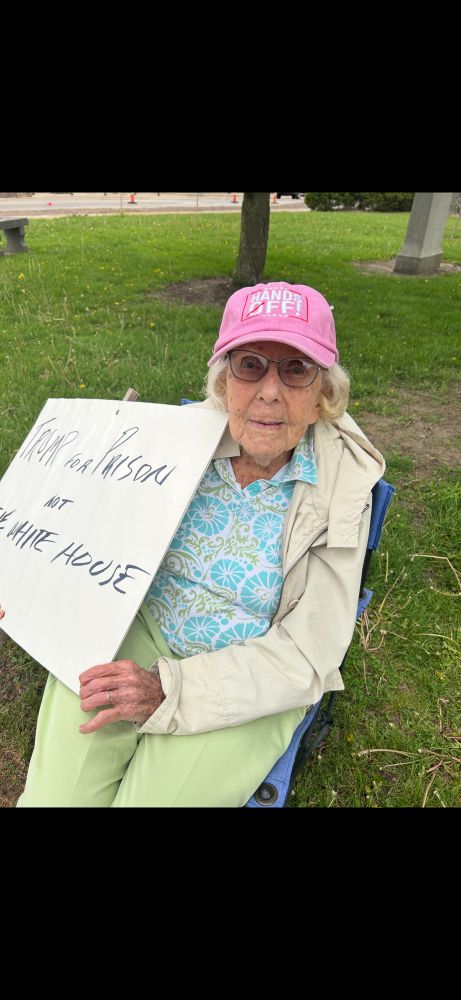 HANDS
OFF!
TRUMP FOR PRISON
NOT
WHITE HOUSE